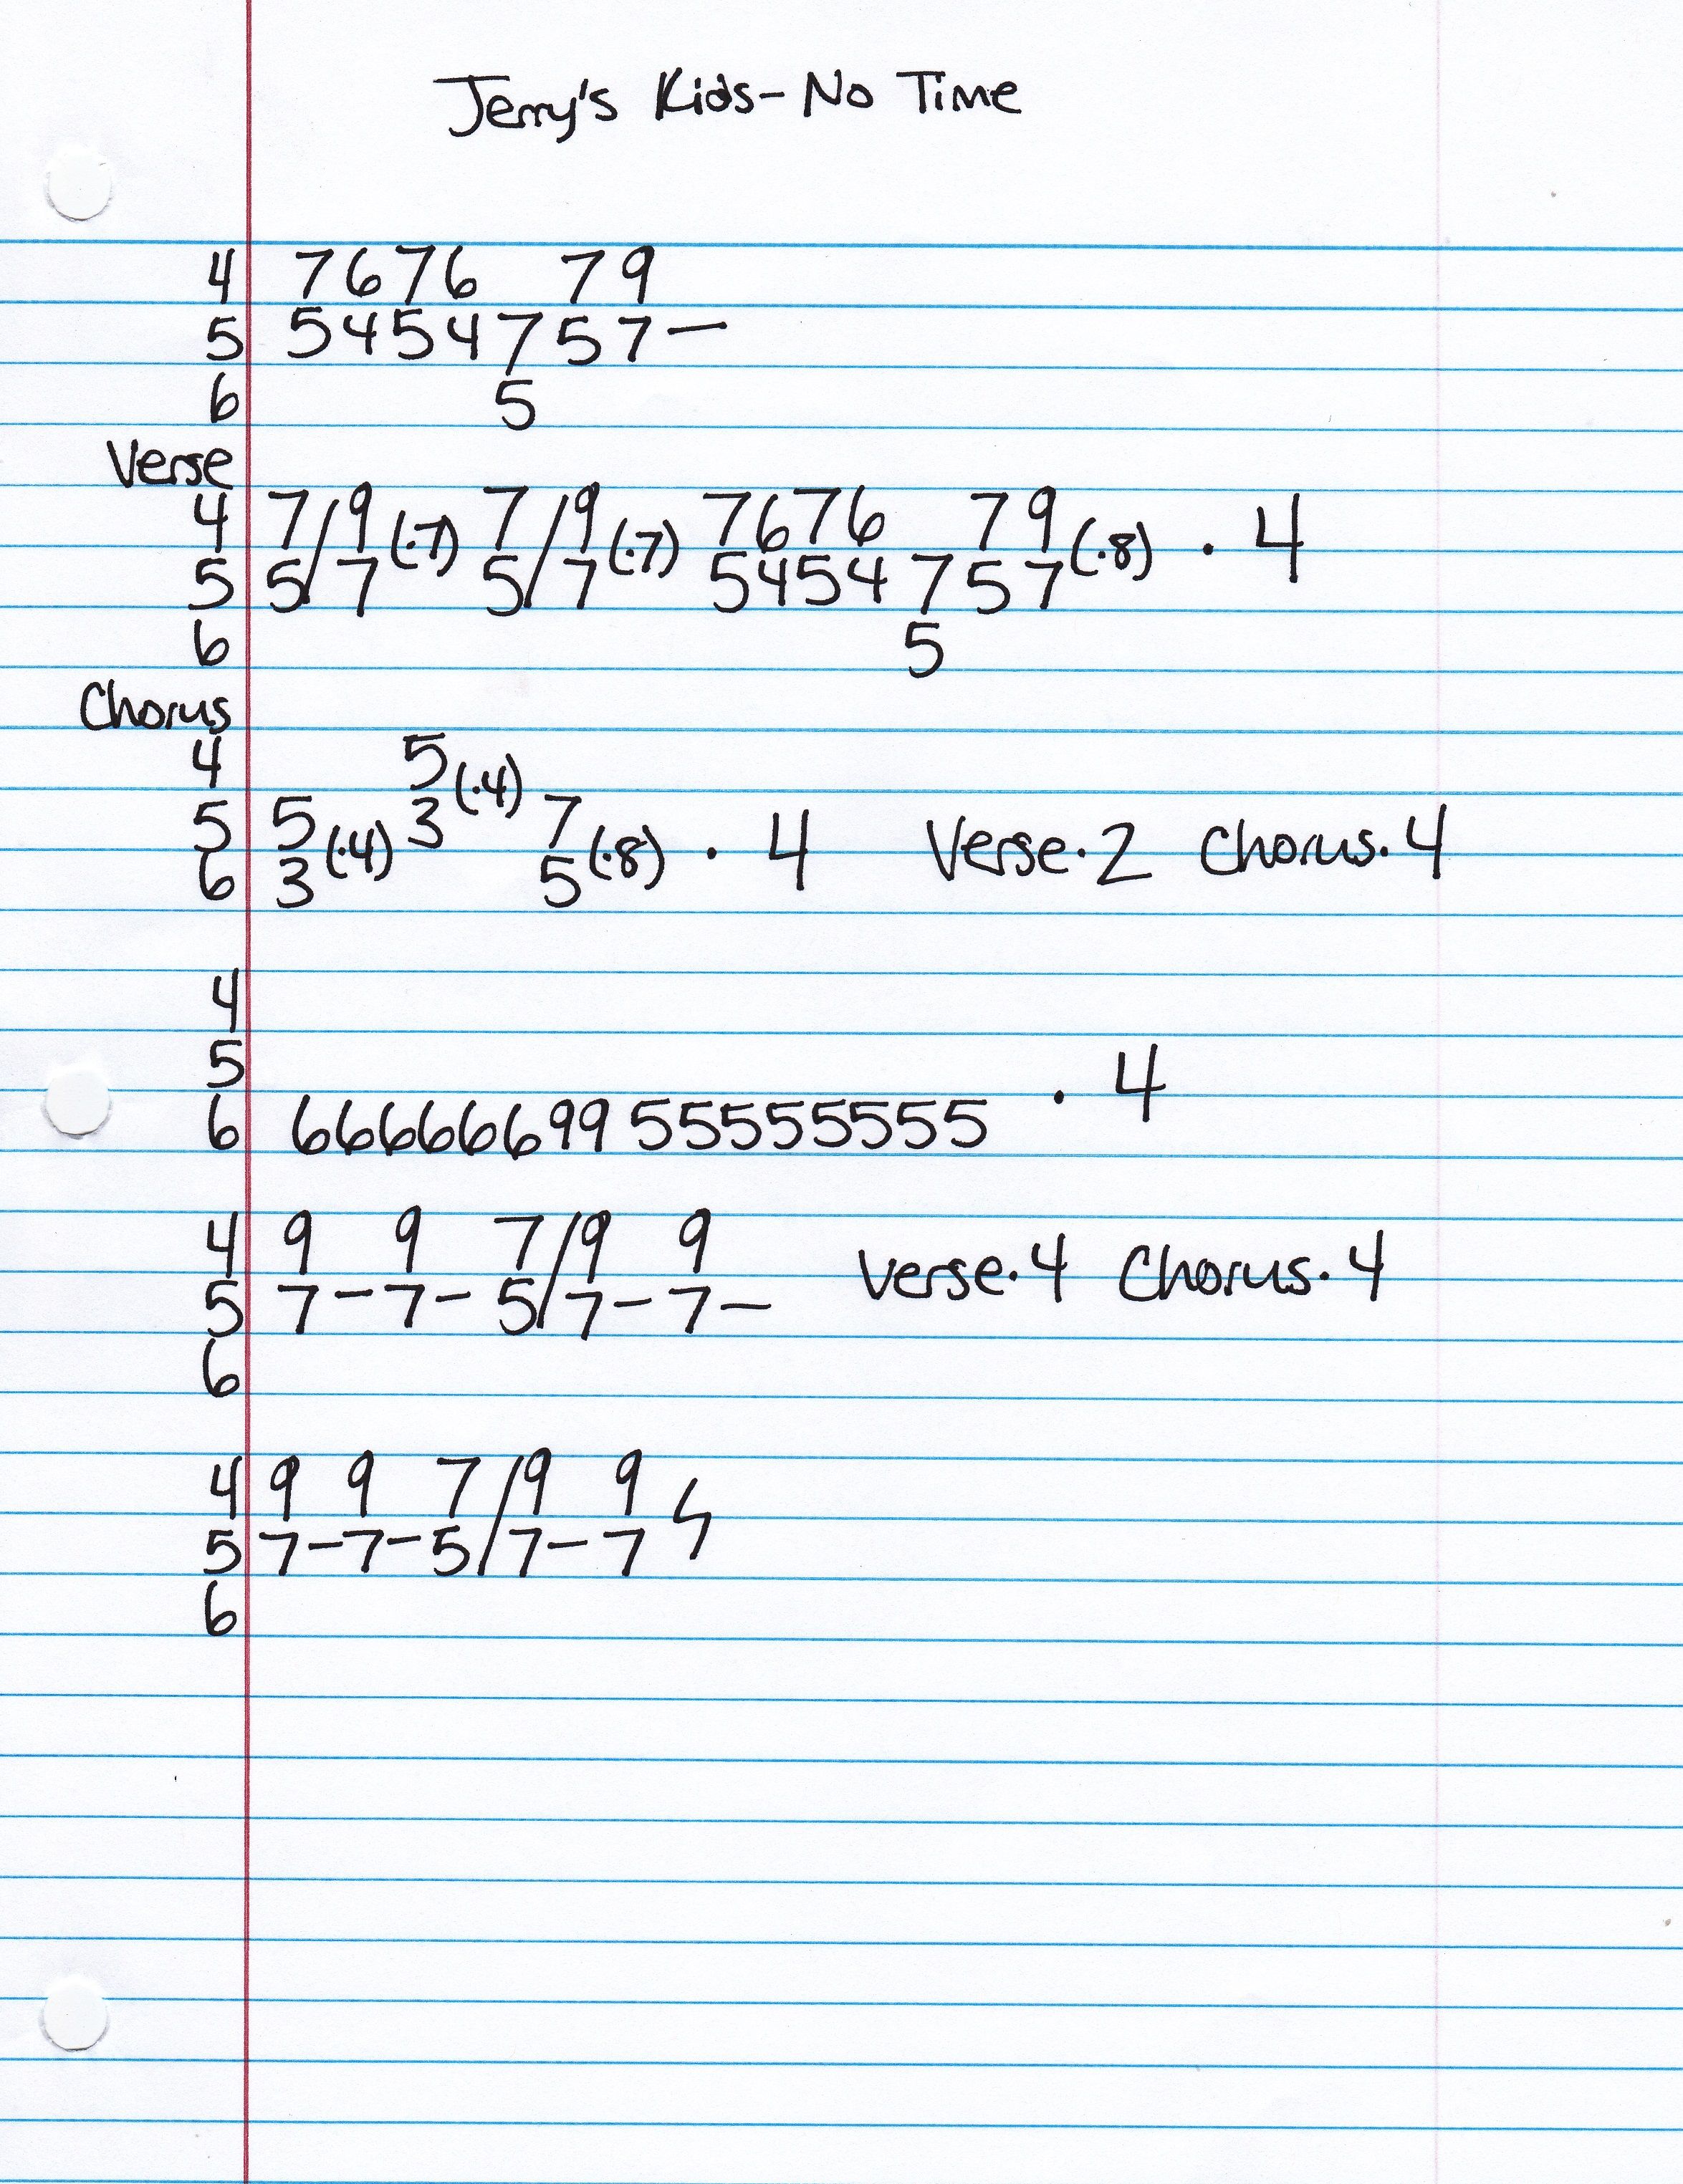 Jerry's Kids - No Time
4 7 6 7 6 7 9
5 5 4 5 4 7 5 7 —
6 5
Verse
4 7/9 (·7) 7/9 (·7) 7 6 7 6 7 9 (·8) · 4
5 5/7 5/7 5 4 5 4 7 5 7
6 5
Chorus
4 5 (·4)
5 5 (·4) 3 7 (·8) · 4 Verse · 2 Chorus · 4
6 3 5
4
5 · 4
6 6 6 6 6 6 6 9 9 5 5 5 5 5 5 5 5
4 9 9 7/9 9 Verse · 4 Chorus · 4
5 7 – 7 – 5/7 – 7 —
6
4 9 9 7/9 9
5 7 – 7 – 5/7 – 7
6